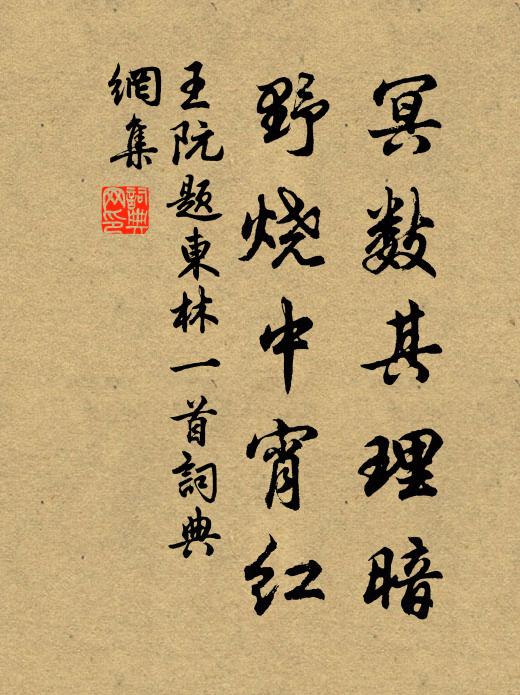 冥数其理暗
野烧中宵红
王阮题東林一首詞典
網集
詞典
网印